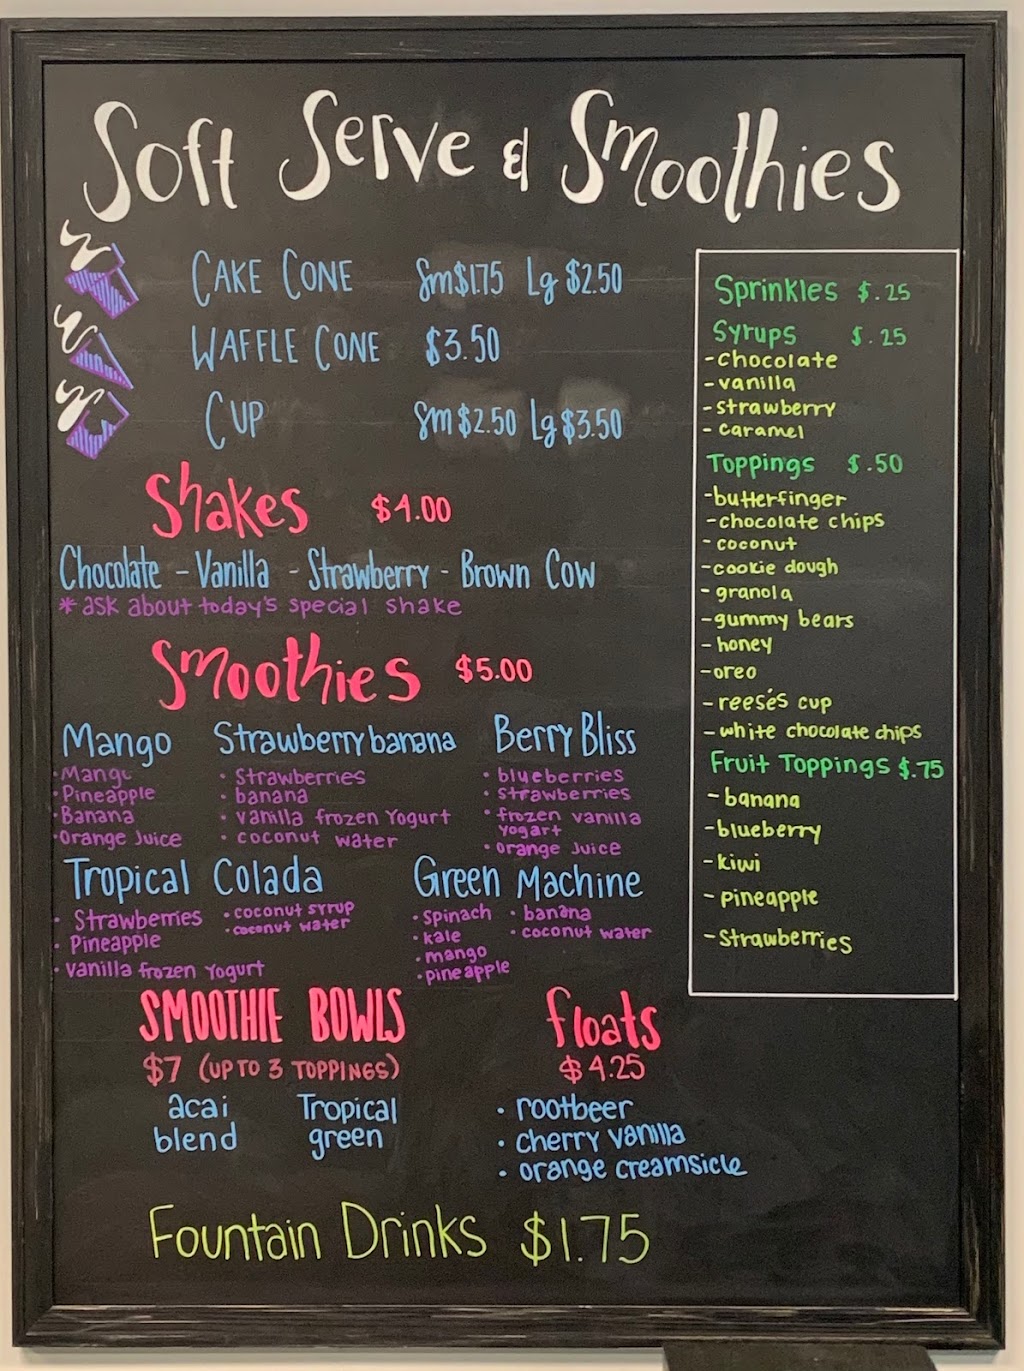 Soft Serve & Smoothies
CAKE CONE Sm $1.75 Lg $2.50
WAFFLE CONE $3.50
CUP Sm $2.50 Lg $3.50
Shakes $4.00
Chocolate - Vanilla - Strawberry - Brown Cow
* ask about today's special shake
Smoothies $5.00
Mango
· Mango
· Pineapple
· Banana
· Orange Juice
Strawberry banana
· Strawberries
· banana
· vanilla frozen Yogurt
· coconut water
Berry Bliss
· blueberries
· strawberries
· frozen vanilla
yogart
· orange juice
Tropical Colada
· Strawberries
· Pineapple
· vanilla frozen Yogurt
· coconut syrup
· coconut water
Green Machine
· spinach
· kale
· mango
· pineapple
· banana
· coconut water
SMOOTHIE BOWLS
$7 (UP TO 3 TOPPINGS)
acai
blend
Tropical
green
floats
$4.25
· rootbeer
· cherry vanilla
· orange creamsicle
Fountain Drinks $1.75
Sprinkles $.25
Syrups $.25
- chocolate
- vanilla
- strawberry
- caramel
Toppings $.50
- butterfinger
- chocolate chips
- coconut
- cookie dough
- granola
- gummy bears
- honey
- oreo
- reese's cup
- white chocolate chips
Fruit Toppings $.75
- banana
- blueberry
- kiwi
- pineapple
- strawberries